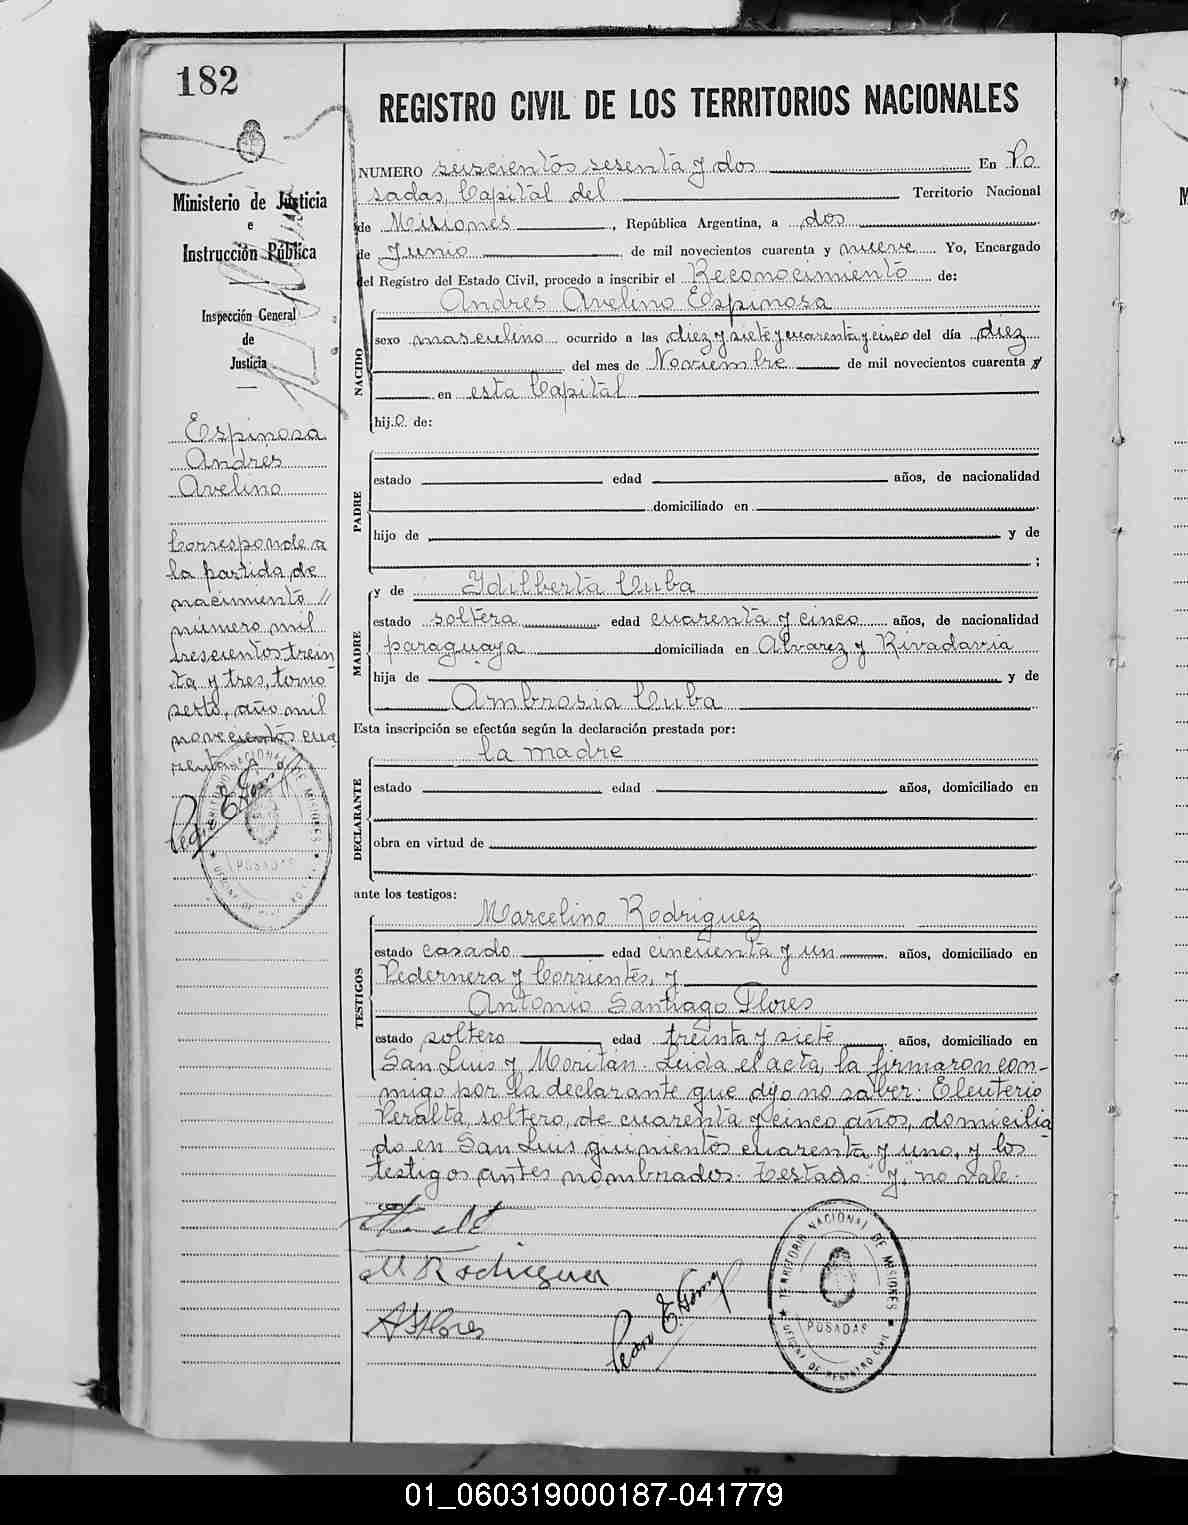 182
Ministerio de Justicia
e
Instrucción Pública
Inspección General
de
Justicia
Espinosa
Andrés
Avelino
Corresponde a
la partida de
nacimiento //
número mil
trescientos trein
ta y tres, tomo
sexto, año mil
novecientos cua
renta
TERRITORIO NACIONAL DE MISIONES
POSADAS
REGISTRO CIVIL DE LOS TERRITORIOS NACIONALES
NUMERO seiscientos sesenta y dos En Po
sadas, Capital del Territorio Nacional
de Misiones, República Argentina, a dos
de Junio de mil novecientos cuarenta y nueve Yo, Encargado
del Registro del Estado Civil, procedo a inscribir el Reconocimiento de:
Andrés Avelino Espinosa
NACIDO
sexo masculino ocurrido a las diez y siete y cuarenta y cinco del día diez
del mes de Noviembre de mil novecientos cuarenta y
en esta Capital
hijo de:
PADRE
estado edad años, de nacionalidad
domiciliado en
hijo de y de
;
MADRE
y de Idilberta Cuba
estado soltera edad cuarenta y cinco años, de nacionalidad
paraguaya domiciliada en Alvarez y Rivadavia
hija de y de
Ambrosia Cuba
Esta inscripción se efectúa según la declaración prestada por:
la madre
DECLARANTE
estado edad años, domiciliado en
obra en virtud de
ante los testigos:
TESTIGOS
Marcelino Rodriguez
estado casado edad cincuenta y un años, domiciliado en
Pedernera y Corrientes, y
Antonio Santiago Flores
estado soltero edad treinta y siete años, domiciliado en
San Luis y Moritán. Leida el acta, la firmaron con-
migo por la declarante que dijo no saber: Eleuterio
Peralta, soltero, de cuarenta y cinco años, domicilia
do en San Luis quinientos cuarenta y uno, y los
testigos antes nombrados. Testado "y" no vale.
M Rodriguez
A S Flores
TERRITORIO NACIONAL DE MISIONES
POSADAS
OFICINA DE REGISTRO CIVIL
01_060319000187-041779